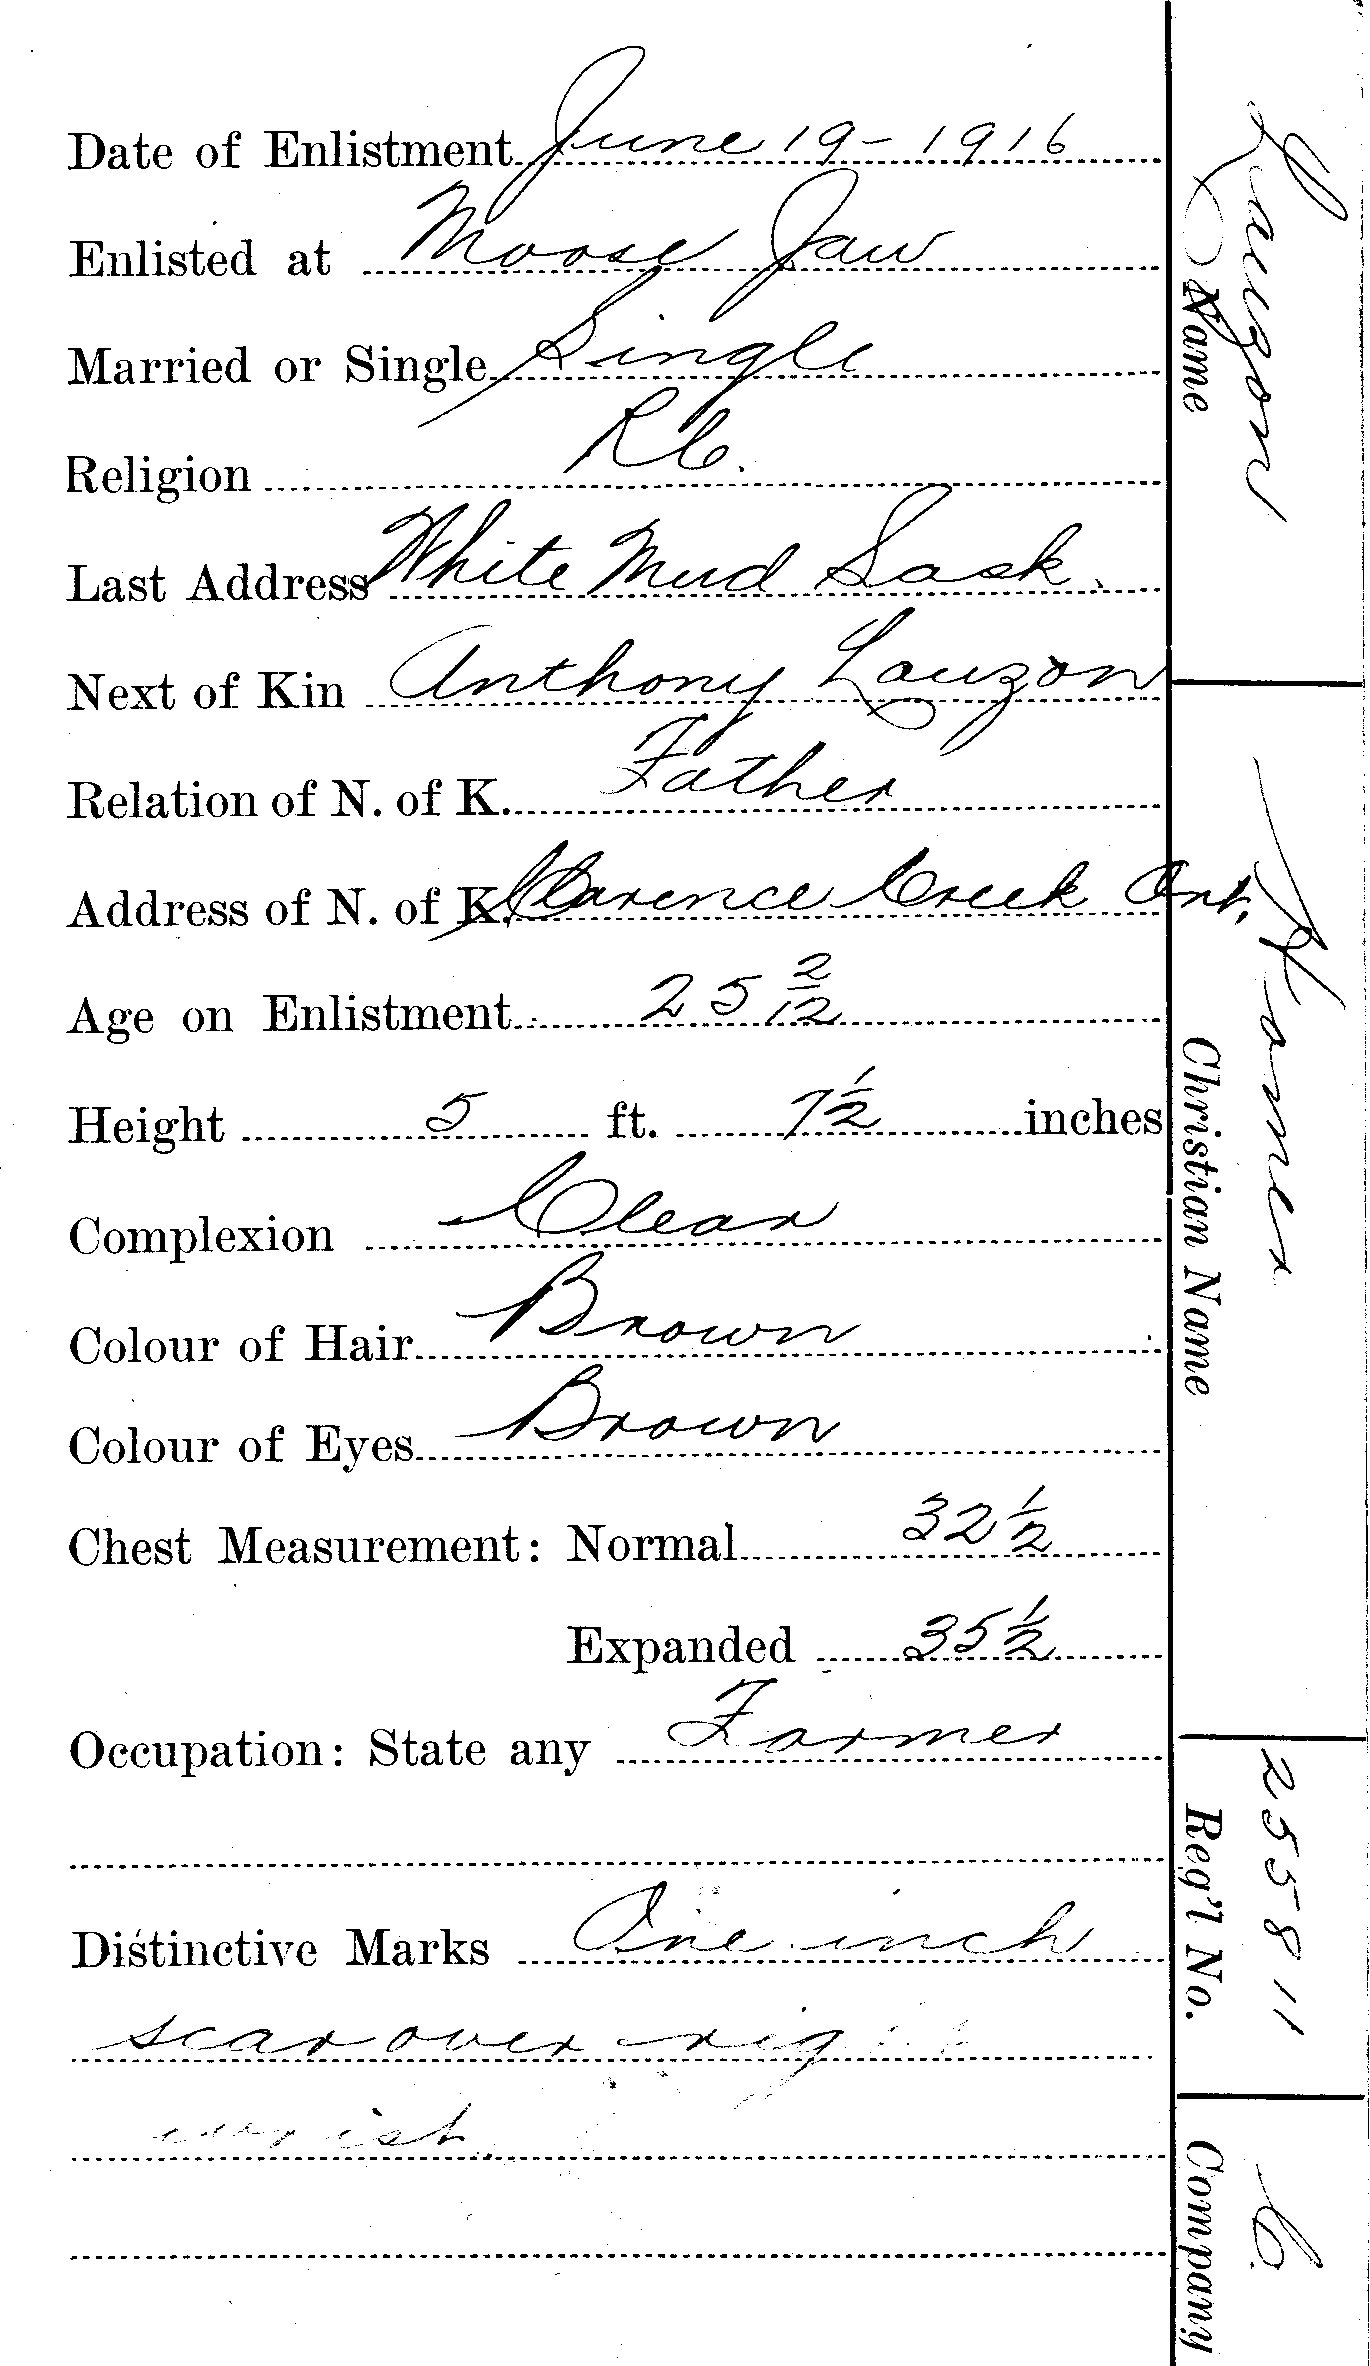 Date of Enlistment June 19 - 1916
Enlisted at Moose Jaw
Married or Single Single
Religion R C.
Last Address White Mud Sask.
Next of Kin Anthony Lauzon
Relation of N. of K. Father
Address of N. of K. Clarence Creek Ont.
Age on Enlistment 25 2/12
Height 5 ft. 7 1/2 inches
Complexion Clear
Colour of Hair Brown
Colour of Eyes Brown
Chest Measurement: Normal 32 1/2
Expanded 35 1/2
Occupation: State any Farmer
Distinctive Marks One inch
scar over right
wrist.
Lauzon
Name
Homer
Christian Name
255811
Reg'l No.
C.
Company